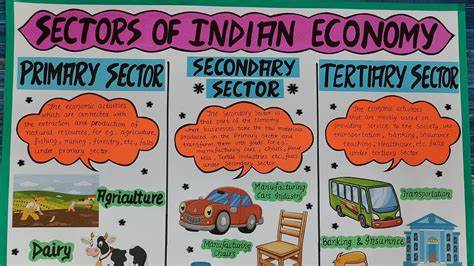 SECTORS OF INDIAN ECONOMY
PRIMARY SECTOR
The economic activities
which are connected with
the extraction and production of
natural resources, for e.g., agriculture,
fishing, mining, forestry, etc., falls
under primary sector.
Agriculture
Dairy
SECONDARY
SECTOR
The Secondary Sector is
that part of the Economy
when businesses take the raw materials
produced in the Primary sector
and transform them into goods. for e.g.,
manufacturing cars, chairs,
Mill, Textile industries etc. falls
under Secondary Sector.
Manufacturing
Cars Industry
Manufacturing
chairs
TERTIARY SECTOR
The economic activities
that are mostly based on
providing service to the society, like
transportation, banking, insurance,
teaching, Healthcare, etc. falls
under tertiary Sector.
Transportation
Banking & Insurance